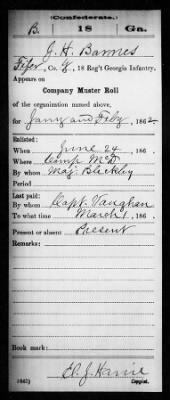 (Confederate.)
B. 18 Ga.
J. H. Barnes
Fifer, Co. G, 18 Reg't Georgia Infantry.
Appears on
Company Muster Roll
of the organization named above,
for Jany and Feby, 1862
Enlisted:
When June 24, 186 .
Where Camp McD
By whom Maj. Bleckley
Period
Last paid:
By whom Capt. Vaughan
To what time March 1, 186 .
Present or absent Present
Remarks:
Book mark:
(642)
Copyist.